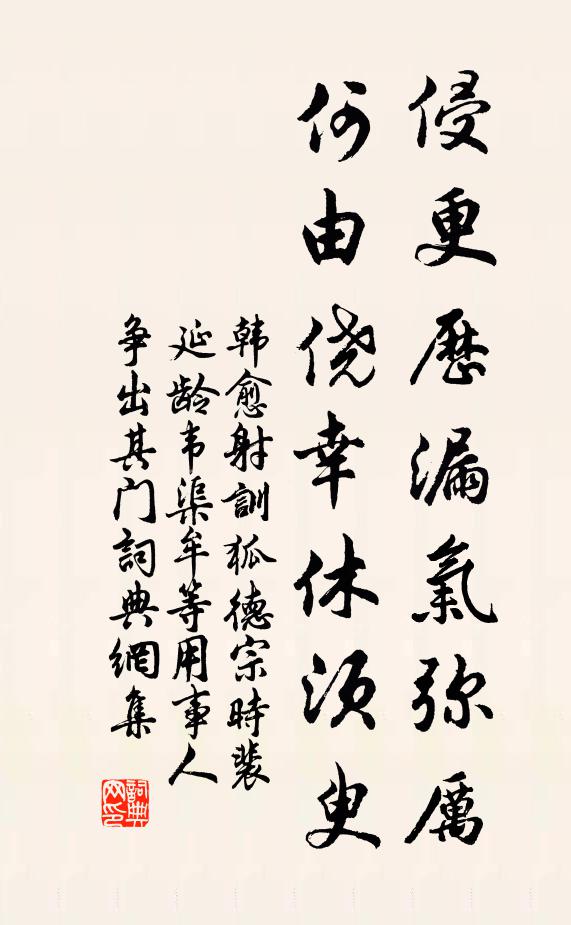 侵更歷漏氣弥厲
何由僥幸休須臾
韩愈射訓狐德宗時裴
延龄韦渠牟等用事人
争出其门詞典網集
詞典网印